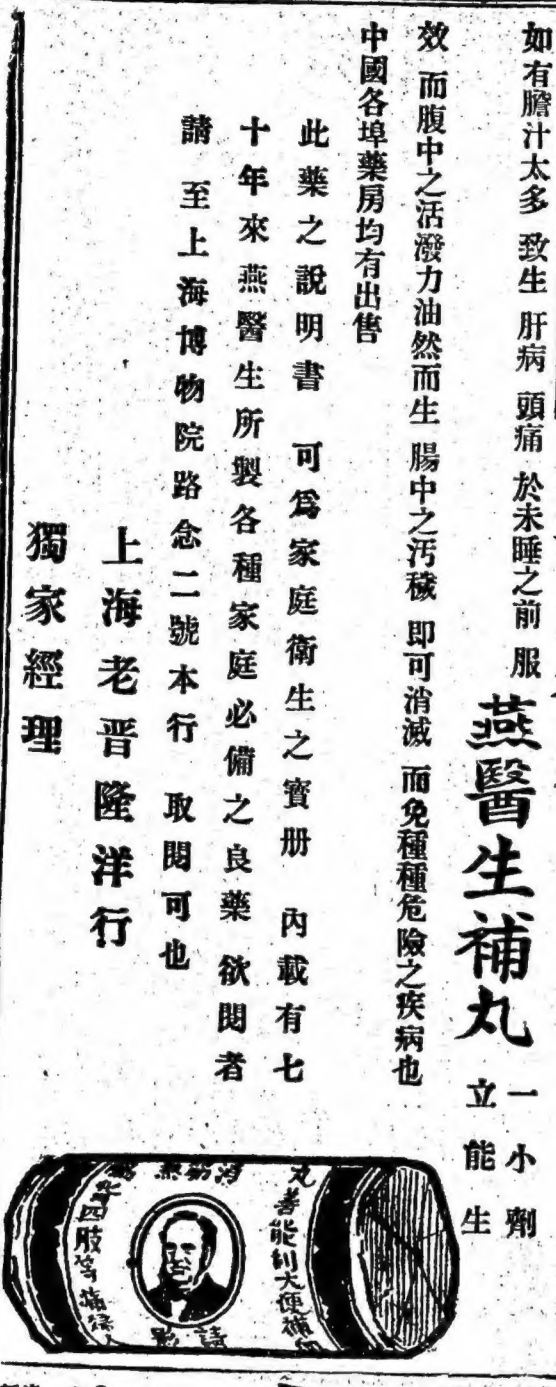 如有膽汁太多 致生 肝病 頭痛 於未睡之前 服
燕醫生補丸
一小劑
立能生
效 而腹中之活潑力油然而生 腸中之汚穢 即可消滅 而免種種危險之疾病也
中國各埠藥房均有出售
此藥之說明書 可爲家庭衛生之寳册 內載有七
十年來燕醫生所製各種家庭必備之良藥欲閱者
請 至上海博物院路念二號本行 取閱可也
上海老晋隆洋行
獨家經理
丸
善能利大便補
四肢等